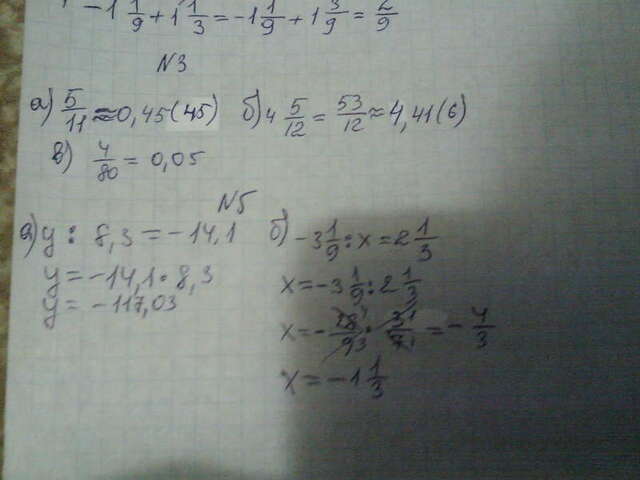 -1 1/9 + 1 1/3 = -1 1/9 + 1 3/9 = 2/9
N3
а) 5/11 ≈ 0,45(45) б) 4 5/12 = 53/12 ≈ 4,41(6)
в) 4/80 = 0,05
N5
а) y : 8,3 = -14,1 б) -3 1/9 : x = 2 1/3
y = -14,1 · 8,3 x = -3 1/9 : 2 1/3
y = -117,03
x = - 28/9 · 3/7 = - 4/3
x = -1 1/3